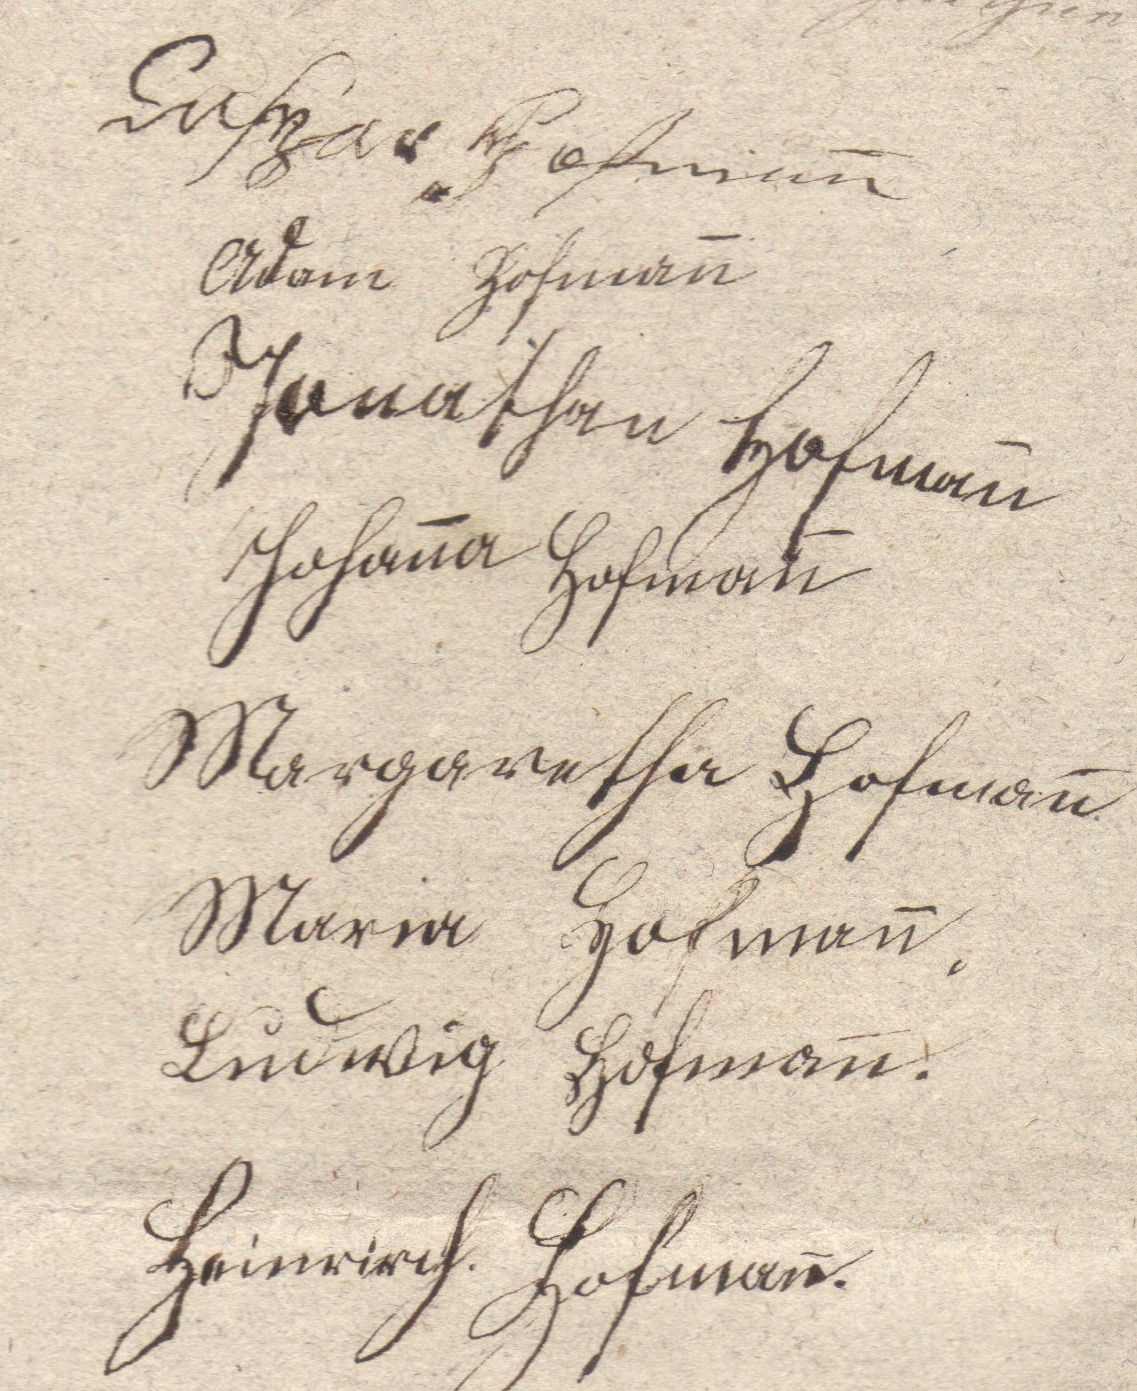 Caspar Hofman̄
Adam Hofman̄
Jonathan Hofman̄
Johan̄a Hofman̄
Margaretha Hofman̄
Maria Hofman̄.
Ludwig Hofman̄.
Heinrich. Hofman̄.